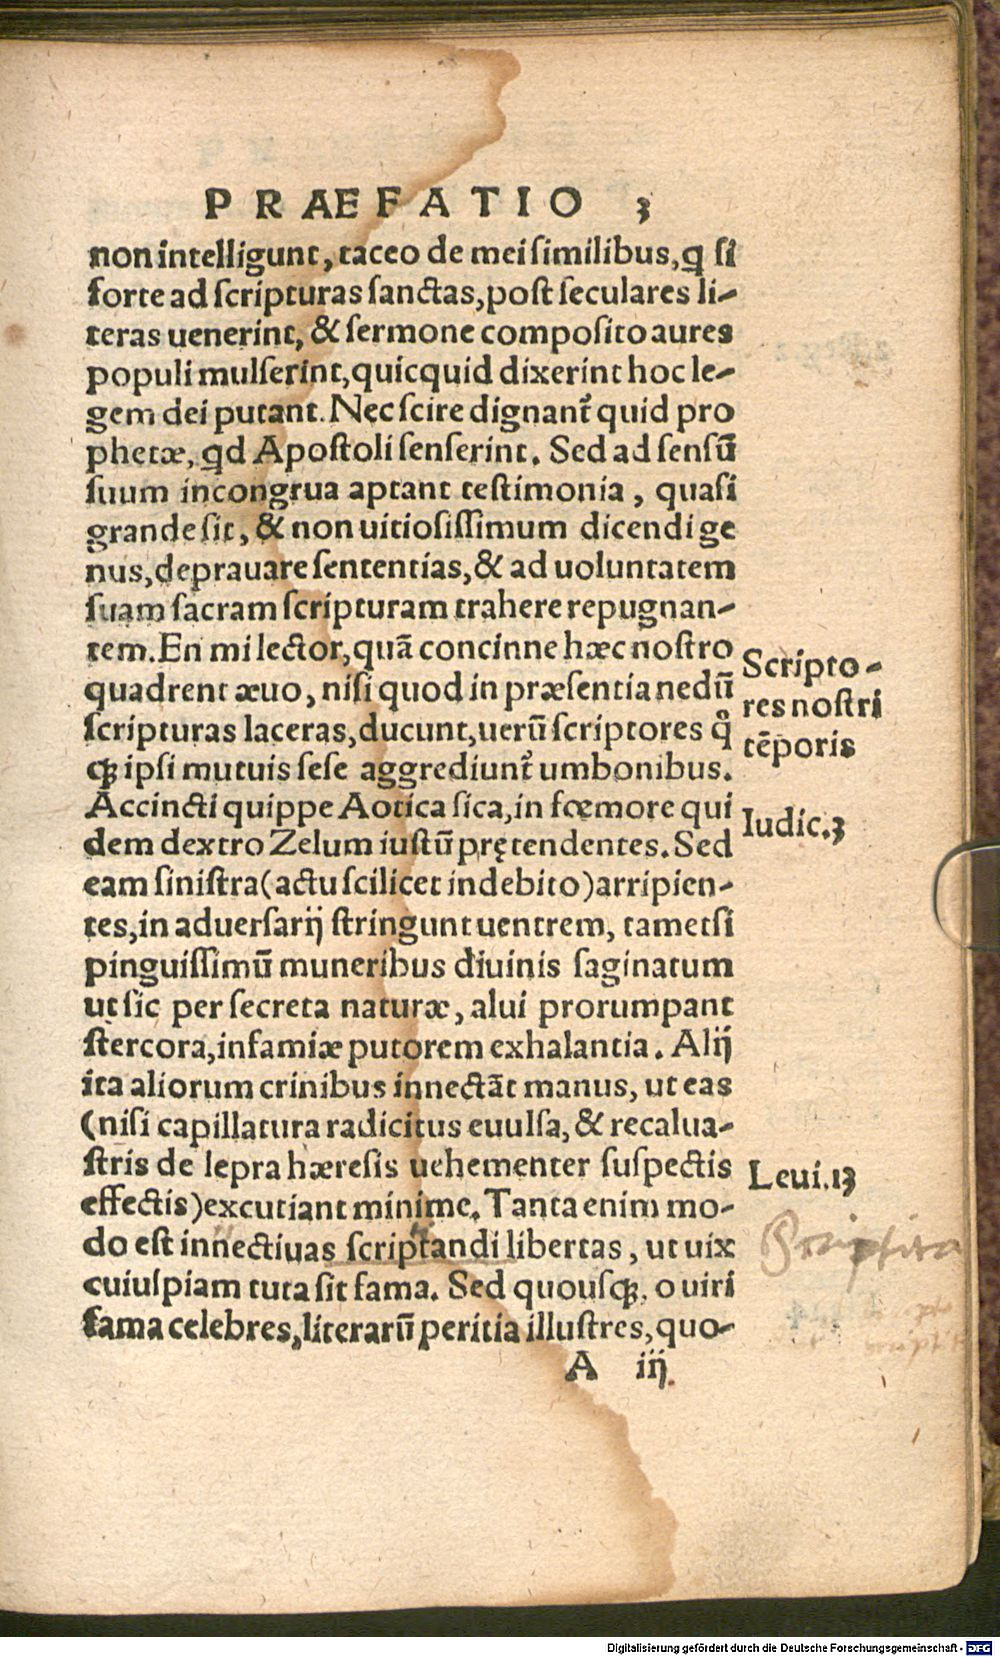 PRAEFATIO 3
non intelligunt, taceo de mei similibus, ꝙ si
forte ad scripturas sanctas, post seculares li-
teras uenerint, & sermone composito aures
populi mulserint, quicquid dixerint hoc le-
gem dei putant. Nec scire dignant᷑ quid pro
phetæ, qd Apostoli senserint. Sed ad sensũ
suum incongrua aptant testimonia, quasi
grande sit, & non uitiosissimum dicendi ge
nus, deprauare sententias, & ad uoluntatem
suam sacram scripturam trahere repugnan-
tem. En mi lector, quã concinne hæc nostro
quadrent æuo, nisi quod in præsentia nedũ
scripturas laceras, ducunt, uerũ scriptores qͦ
ꝗ̃ ipsi mutuis sese aggrediunt᷑ umbonibus.
Accincti quippe Aotica sica, in fœmore qui
dem dextro Zelum iustũ prętendentes. Sed
eam sinistra (actu scilicet indebito) arripien-
tes, in adversarij stringunt uentrem, tametsi
pinguissimũ muneribus diuinis saginatum
ut sic per secreta naturæ, alui prorumpant
stercora, infamiæ putorem exhalantia. Alij
ita aliorum crinibus innectãt manus, ut eas
(nisi capillatura radicitus euulsa, & recalua-
stris de lepra hæresis uehementer suspectis
effectis) excutiant minime. Tanta enim mo-
do est innectiuas scriptandi libertas, ut uix
cuiuspiam tuta sit fama. Sed quousqꝫ, o uiri
fama celebres, literarũ peritia illustres, quo-
A iij
Scripto-
res nostri
tẽporis
Iudic.3
Leui.13
Digitalisierung gefördert durch die Deutsche Forschungsgemeinschaft - DFG